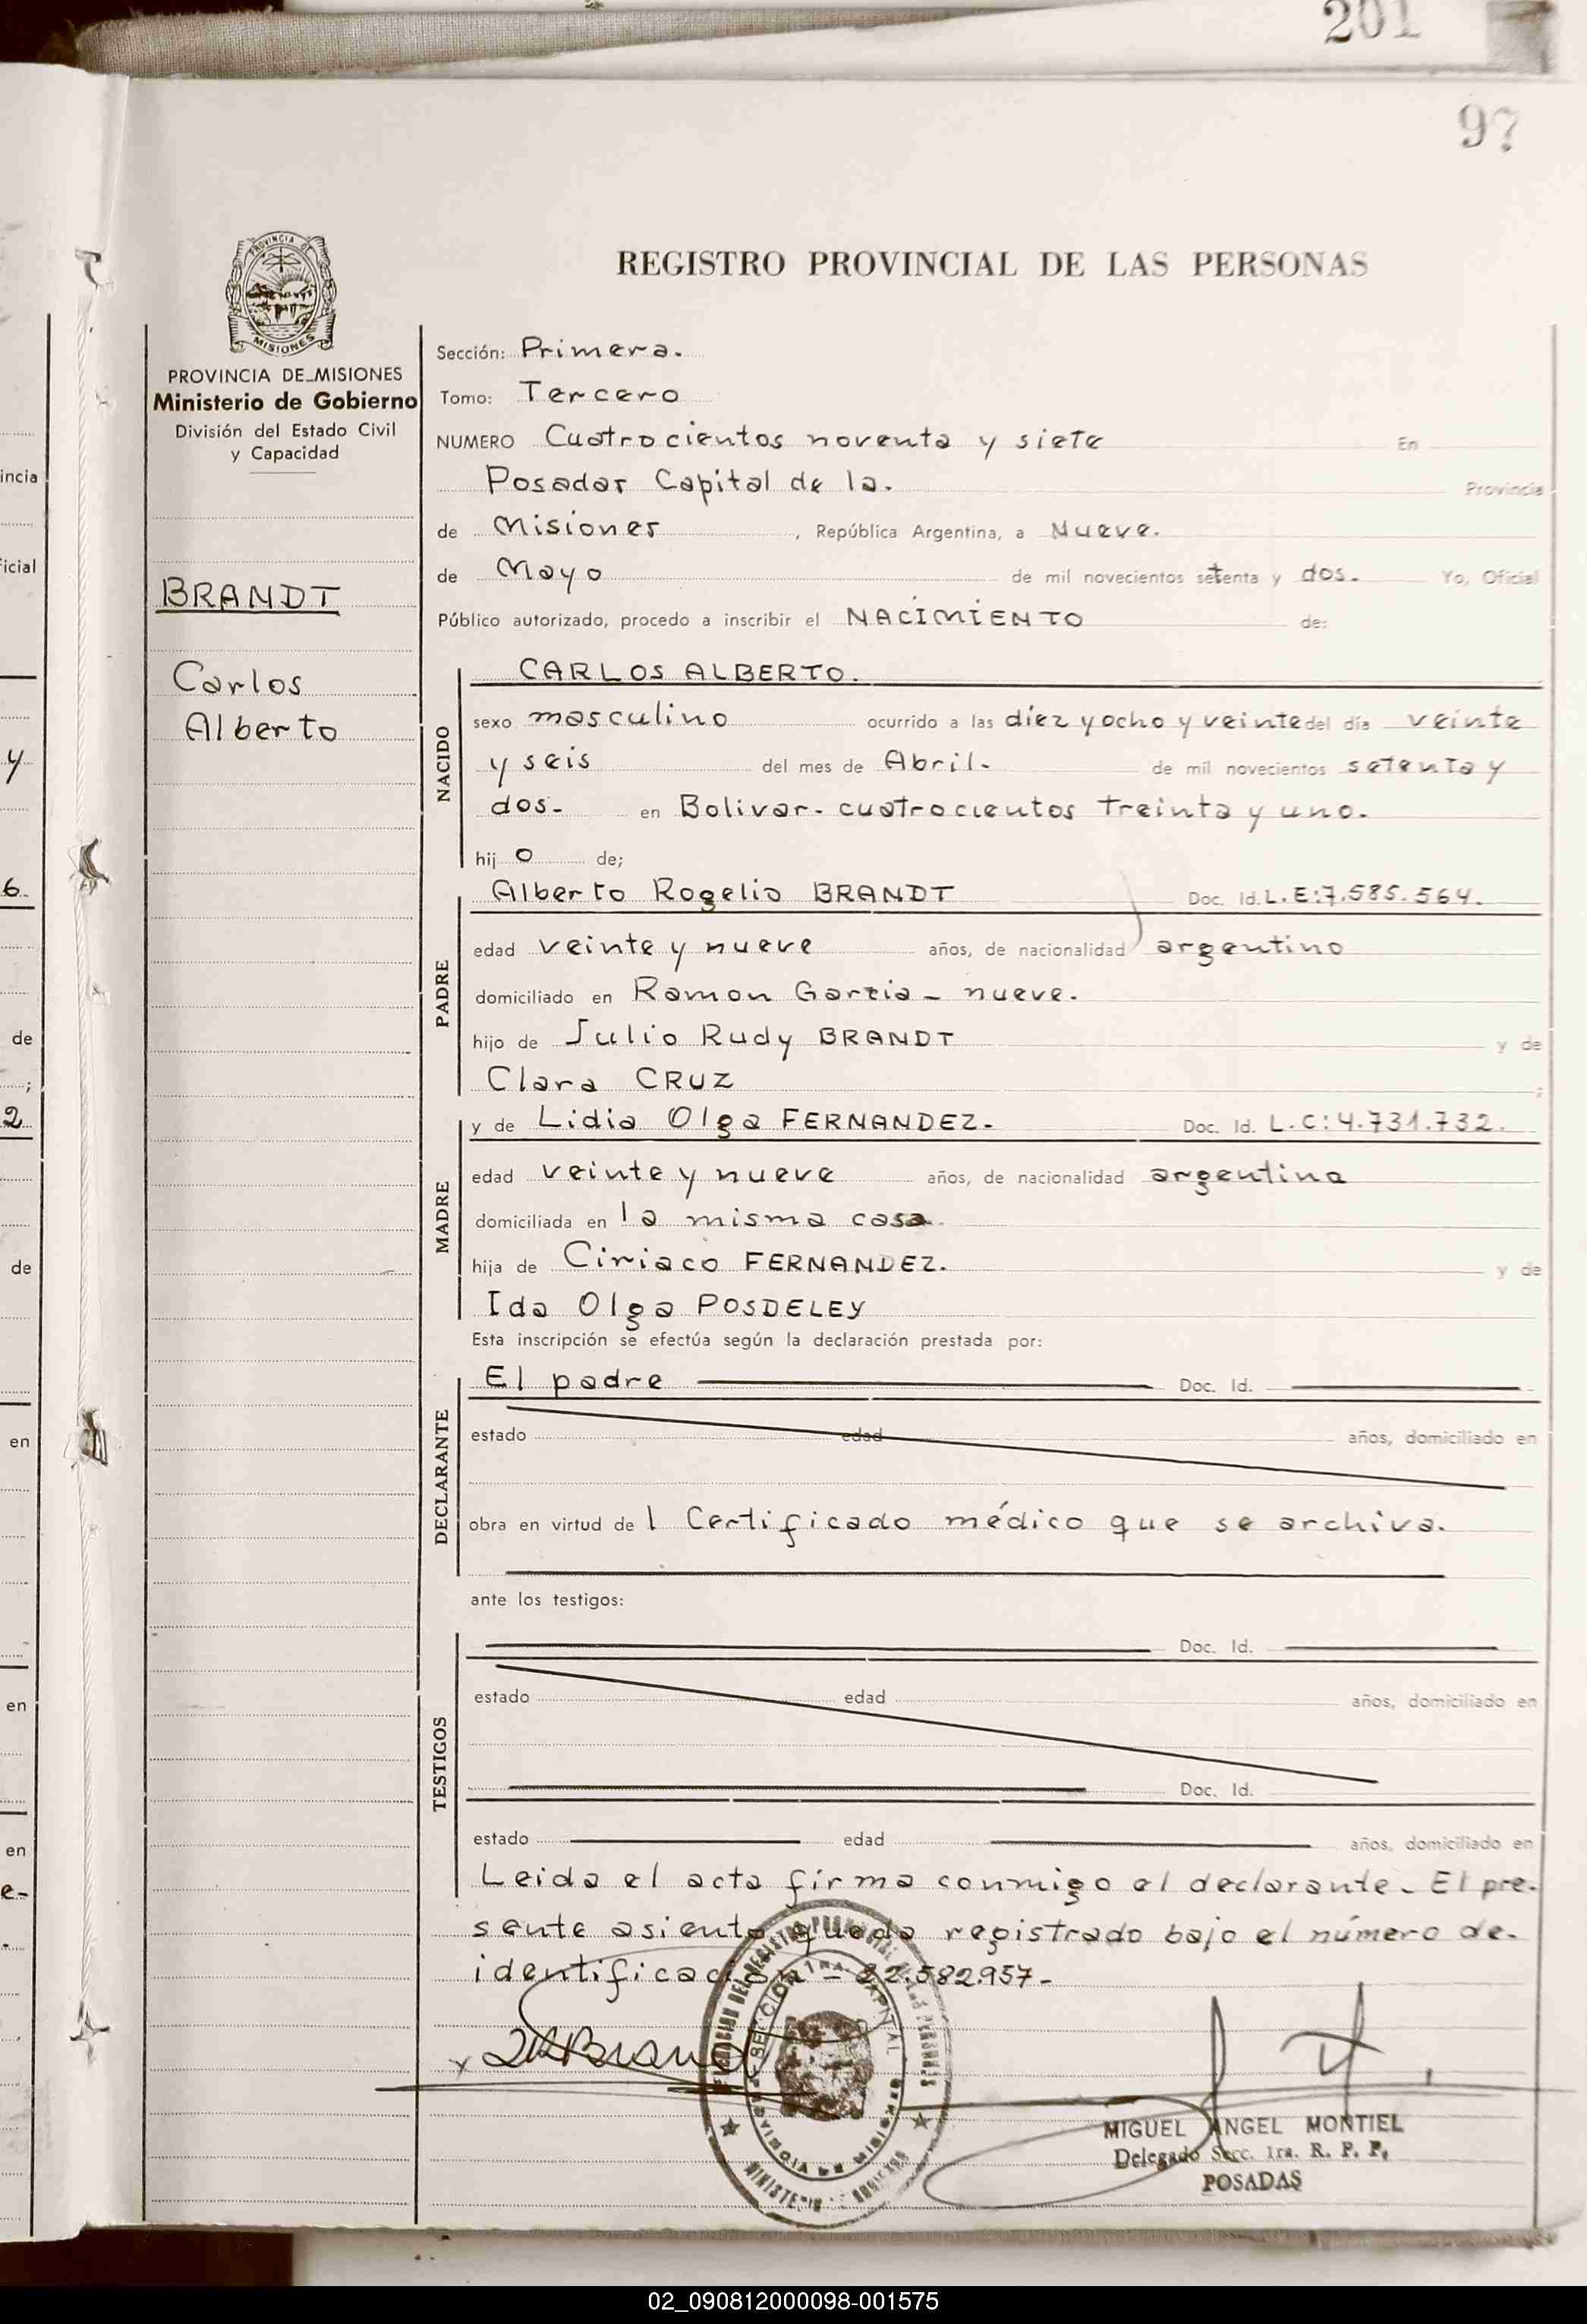 201
97
REGISTRO PROVINCIAL DE LAS PERSONAS
PROVINCIA DE MISIONES
PROVINCIA DE MISIONES
Ministerio de Gobierno
División del Estado Civil
y Capacidad
BRANDT
Carlos
Alberto
Sección: Primera.
Tomo: Tercero
NUMERO Cuatrocientos noventa y siete En
Posadas Capital de la. Provincia
de Misiones, República Argentina, a Nueve.
de Mayo de mil novecientos setenta y dos. Yo, Oficial
Público autorizado, procedo a inscribir el NACIMIENTO de:
NACIDO
CARLOS ALBERTO.
sexo masculino ocurrido a las diez y ocho y veinte del día veinte
y seis del mes de Abril. de mil novecientos setenta y
dos- en Bolivar- cuatrocientos treinta y uno.
hijo de;
PADRE
Alberto Rogelio BRANDT Doc. Id. L.E:7.585.564.
edad veinte y nueve años, de nacionalidad argentino
domiciliado en Ramon Garcia - nueve.
hijo de Julio Rudy BRANDT y de
Clara CRUZ ;
MADRE
y de Lidia Olga FERNANDEZ- Doc. Id. L.C:4.731.732.
edad veinte y nueve años, de nacionalidad argentina
domiciliada en la misma casa.
hija de Ciriaco FERNANDEZ. y de
Ida Olga POSDELEY
Esta inscripción se efectúa según la declaración prestada por:
DECLARANTE
El padre Doc. Id.
estado edad años, domiciliado en
obra en virtud de l Certificado médico que se archiva.
ante los testigos:
TESTIGOS
Doc. Id.
estado edad años, domiciliado en
Doc. Id.
estado edad años, domiciliado en
Leida el acta firma conmigo el declarante- El pre-
sente asiento queda registrado bajo el número de-
identificación - 22.582.957-
SECCION 1RA. CAPITAL
PROVINCIA DE MISIONES
MIGUEL ANGEL MONTIEL
Delegado Secc. 1ra. R. P. P.
POSADAS
incia
ficial
y
6
de
;
2
de
en
en
en
e-
02_090812000098-001575